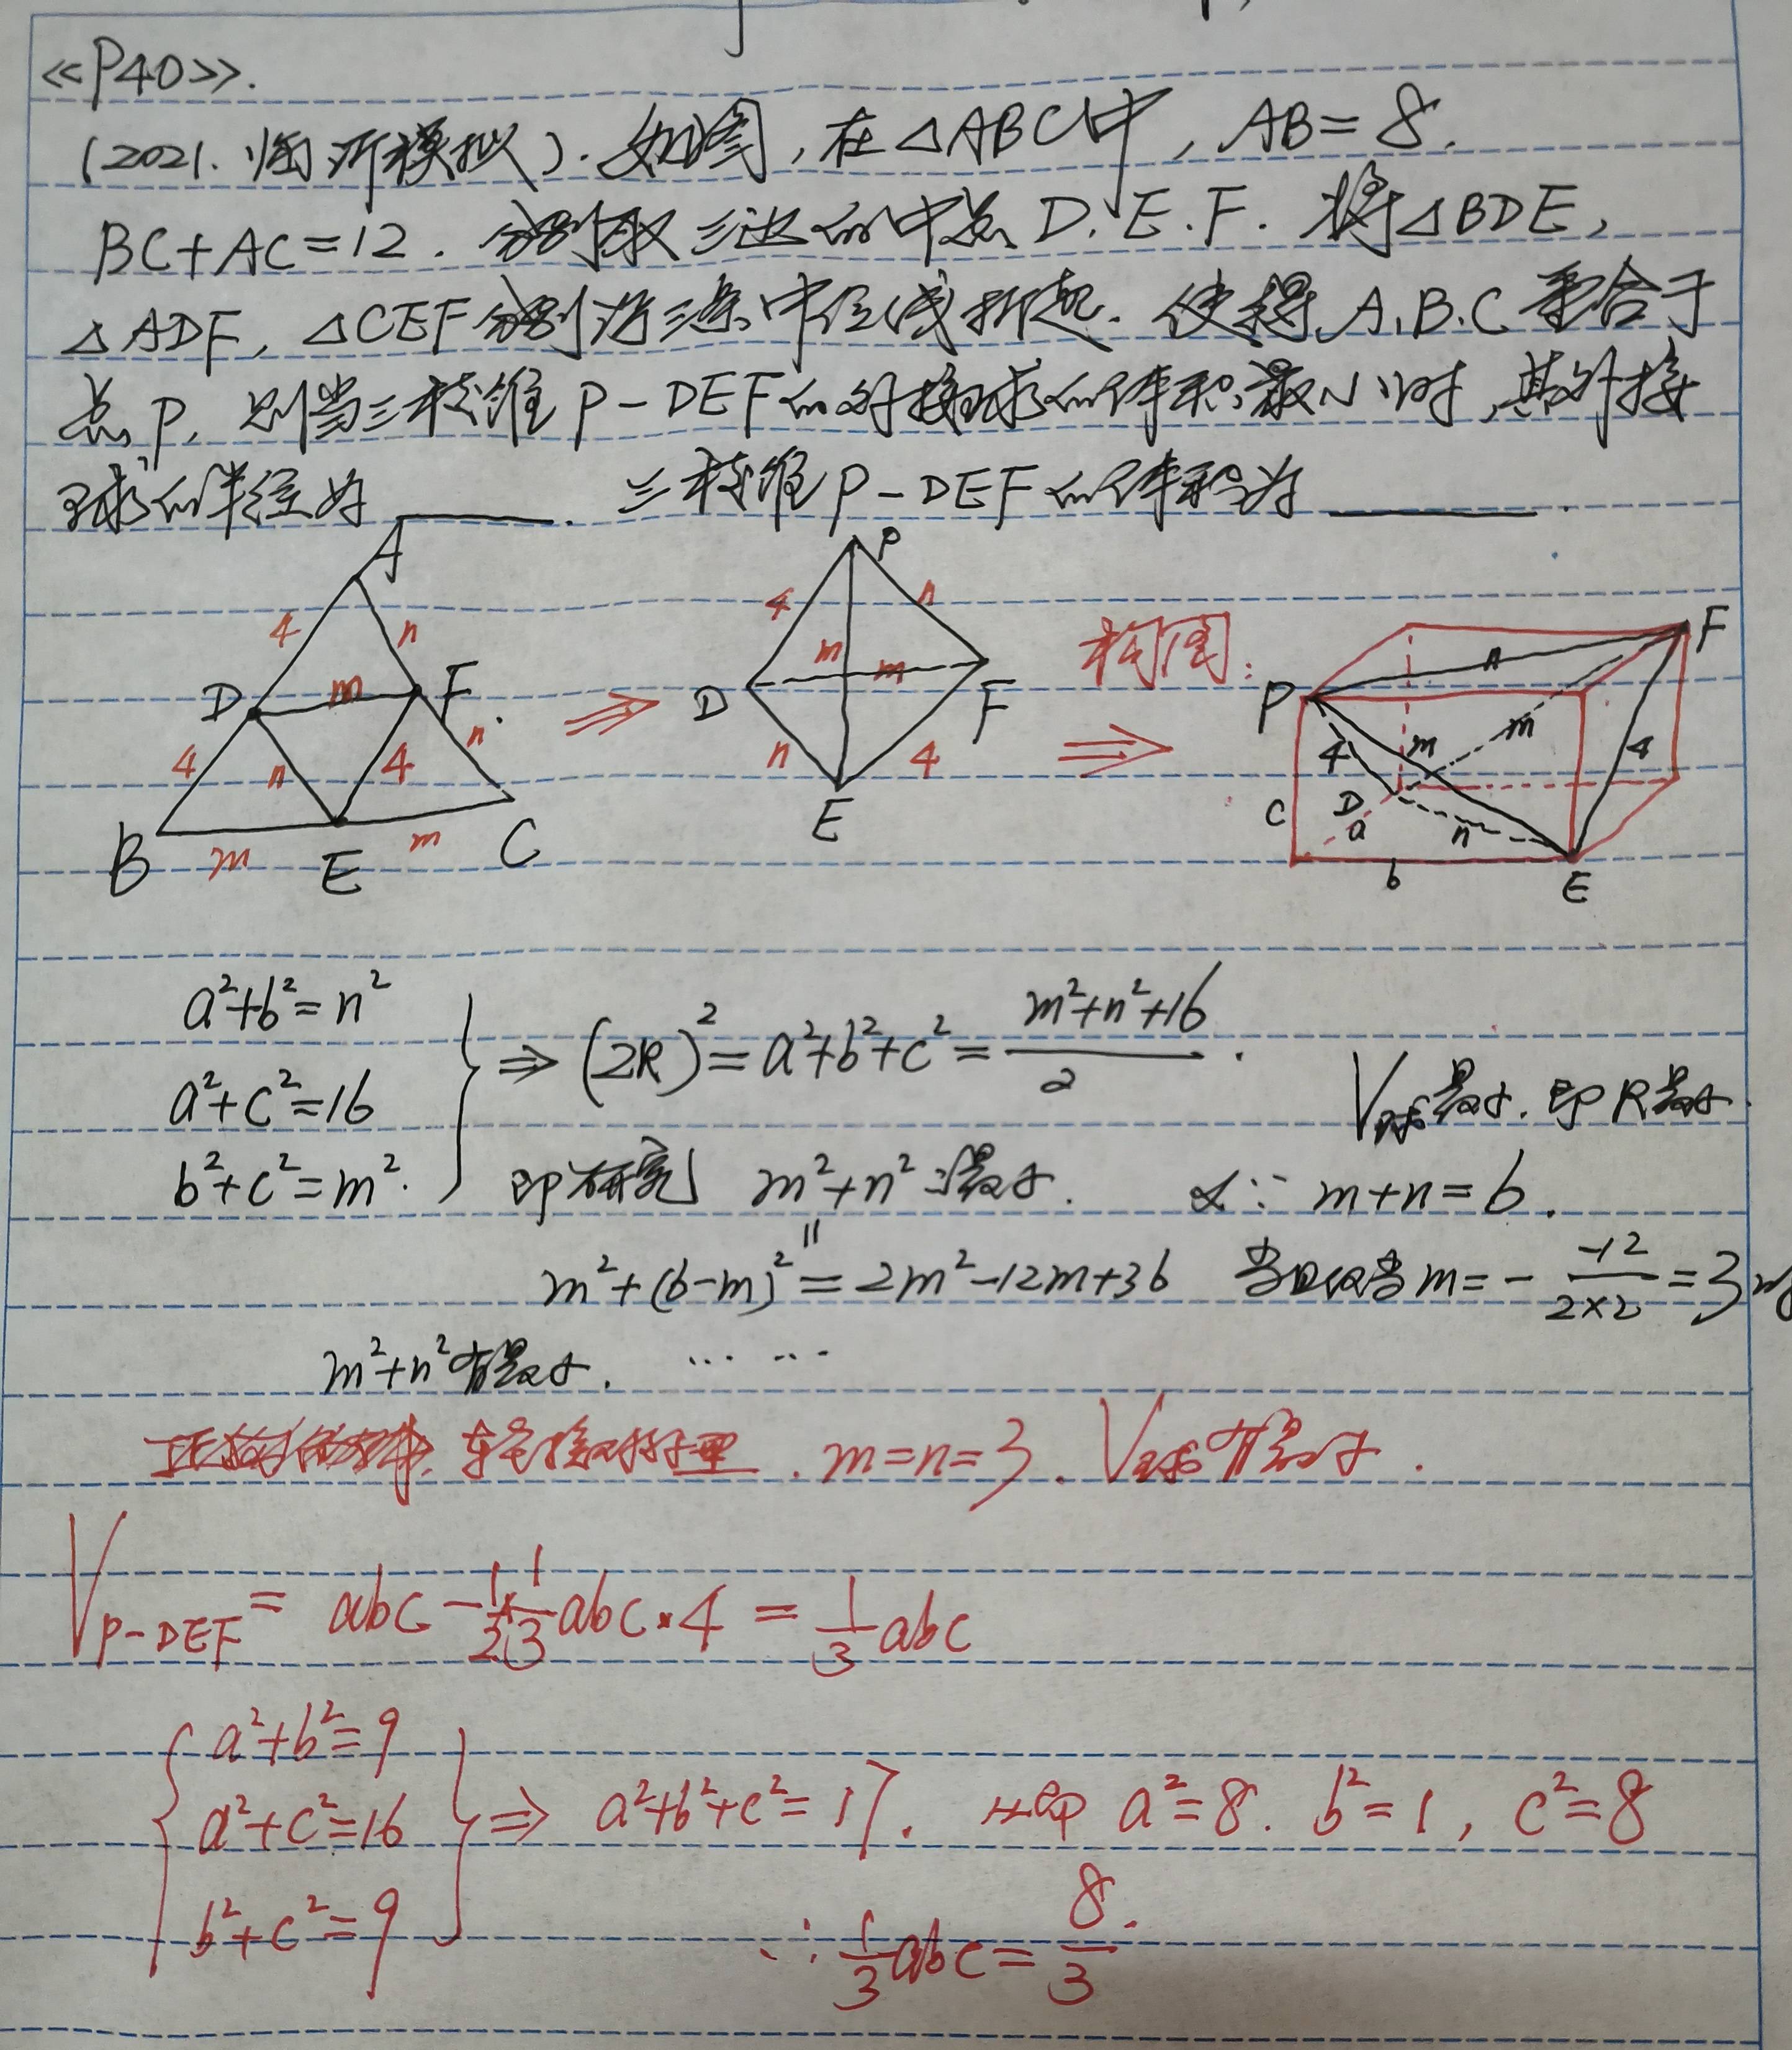 《P40》.
(2021. 临沂模拟). 如图, 在△ABC中, AB=8.
BC+AC=12. 分别取三边的中点 D.E.F. 将△BDE,
△ADF, △CEF分别沿三条中位线折起. 使得A.B.C重合于
点P. 则当三棱锥P-DEF的外接球的体积最小时, 其外接
球的半径为____. 三棱锥P-DEF的体积为____.
A
4 n
D m F.
4 n 4 n
B m E m C
P
4 m n
D m F
n 4
E
构图:
F
n
P
4 m m 4
c D a n
b E
a²+b²=n²
a²+c²=16
b²+c²=m².
⇒ (2R)²=a²+b²+c²= (m²+n²+16)/2 .
V球最小. 即R最小.
即研究 m²+n² 最小. ∵ m+n=6.
m²+(6-m)²=2m²-12m+36 当且仅当m=- -12/(2×2) =3时
m²+n²有最小. … …
m=n=3. V球有最小.
V P-DEF = abc - 1/2×1/3 abc·4 = 1/3 abc
a²+b²=9
a²+c²=16
b²+c²=9
⇒ a²+b²+c²=17. a²=8. b²=1, c²=8
∴ 1/3 abc= 8/3.